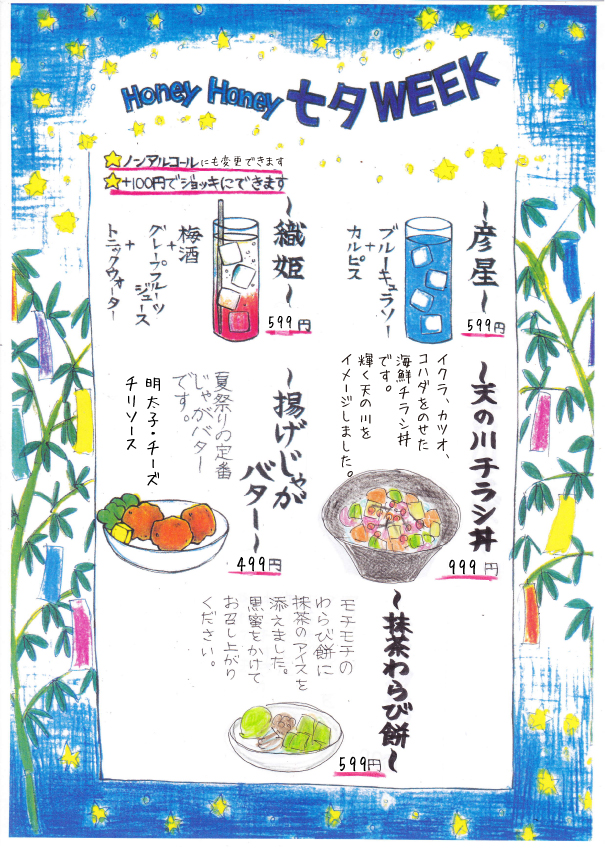 Honey Honey 七夕 WEEK
ノンアルコールにも変更できます
+100円でジョッキにできます
〜彦星〜
ブルーキュラソー
+
カルピス
599円
〜織姫〜
梅酒
+
グレープフルーツ
ジュース
+
トニックウォーター
599円
〜天の川チラシ丼
イクラ、カツオ、
コハダをのせた
海鮮チラシ丼
です。
輝く天の川を
イメージしました。
999円
〜揚げじゃが
バター〜
夏祭りの定番
じゃがバター
です。
明太子・チーズ
チリソース
499円
〜抹茶わらび餅〜
モチモチの
わらび餅に
抹茶のアイスを
添えました。
黒蜜をかけて
お召し上がり
ください。
599円